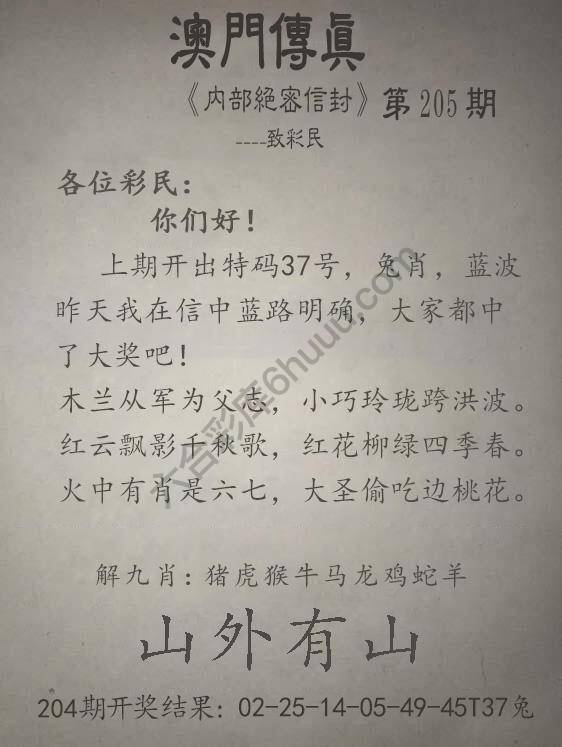 澳門傳眞
《内部絕密信封》第205期
----致彩民
各位彩民：
你们好！
上期开出特码37号，兔肖，蓝波
昨天我在信中蓝路明确，大家都中
了大奖吧！
木兰从军为父志，小巧玲珑跨洪波。
红云飘影千秋歌，红花柳绿四季春。
火中有肖是六七，大圣偷吃边桃花。
六合彩库6huuu.com
解九肖：猪虎猴牛马龙鸡蛇羊
山外有山
204期开奖结果：02-25-14-05-49-45T37兔